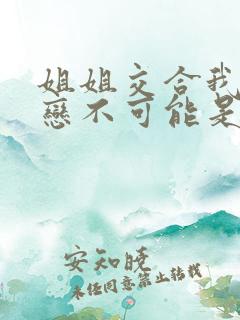 姐姐交合我
戀不可能是
安知晓
未经同意禁止转载